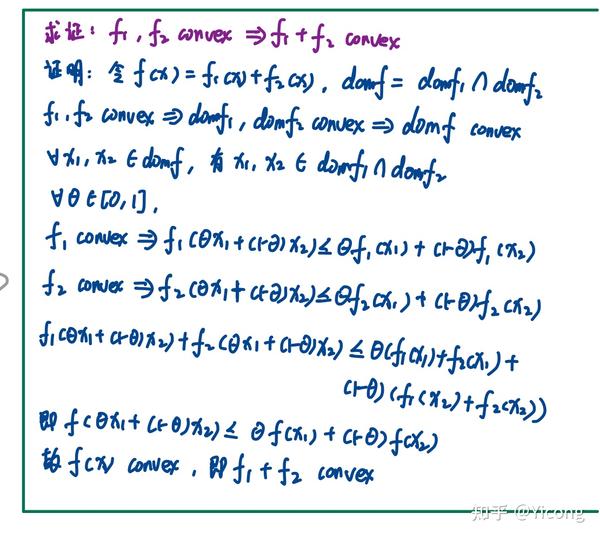 求证：f₁, f₂ convex ⇒ f₁ + f₂ convex
证明：令 f(x) = f₁(x) + f₂(x), domf = domf₁ ∩ domf₂
f₁, f₂ convex ⇒ domf₁, domf₂ convex ⇒ domf convex
∀x₁, x₂ ∈ domf, 有 x₁, x₂ ∈ domf₁ ∩ domf₂
∀θ ∈ [0,1],
f₁ convex ⇒ f₁(θx₁ + (1-θ)x₂) ≤ θf₁(x₁) + (1-θ)f₁(x₂)
f₂ convex ⇒ f₂(θx₁ + (1-θ)x₂) ≤ θf₂(x₁) + (1-θ)f₂(x₂)
f₁(θx₁ + (1-θ)x₂) + f₂(θx₁ + (1-θ)x₂) ≤ θ(f₁(x₁) + f₂(x₁)) +
(1-θ)(f₁(x₂) + f₂(x₂))
即 f(θx₁ + (1-θ)x₂) ≤ θf(x₁) + (1-θ)f(x₂)
故 f(x) convex, 即 f₁ + f₂ convex
知乎 @Yicong